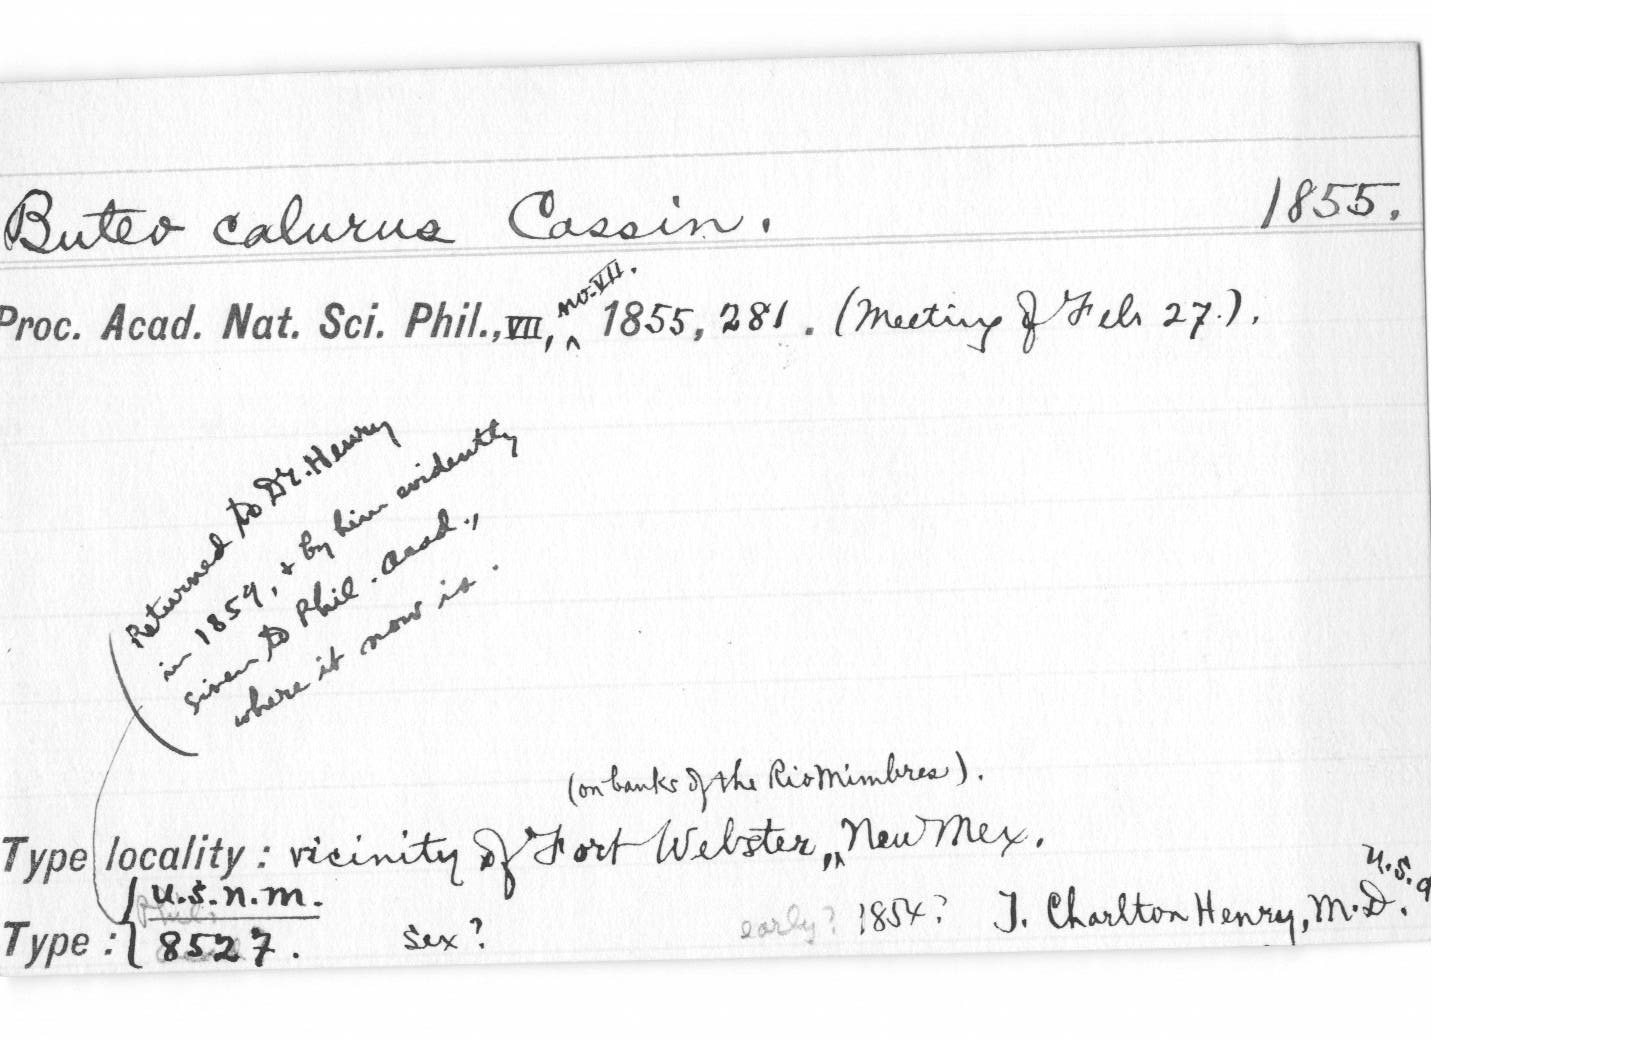 Buteo calurus Cassin. 1855.
Proc. Acad. Nat. Sci. Phil., VII, no. VII. 1855, 281. (Meeting of Feb 27.).
(Returned to Dr. Henry
in 1859, & by him evidently
given to Phil. Acad.,
where it now is.
(on banks of the Rio Mimbres).
Type locality: vicinity of Fort Webster, New Mex.
U.S.N.M. U.S.A
Type: 8527. Sex? early? 1854? T. Charlton Henry, M.D.